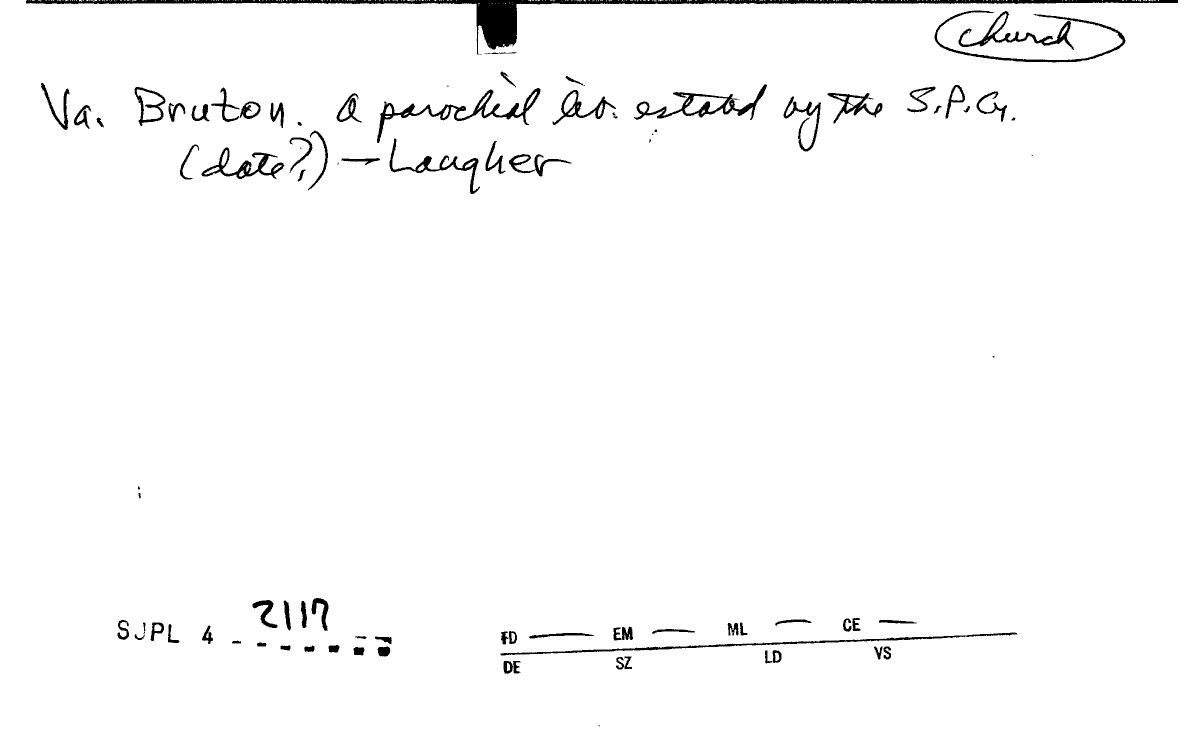 Church
Va. Bruton. A parochial libr. estabd by the S.P.G.
(date?) — Laugher
SJPL 4 - 2117
FD EM ML CE
DE SZ LD VS